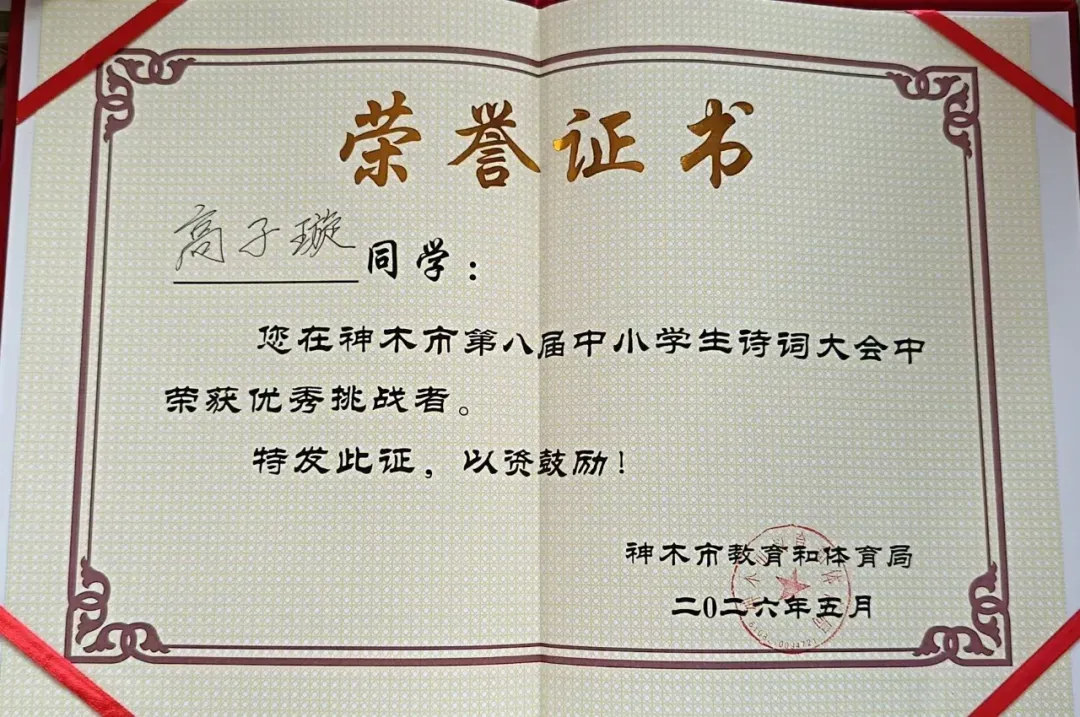 荣誉证书
高子璇同学：
您在神木市第八届中小学生诗词大会中
荣获优秀挑战者。
特发此证，以资鼓励！
神木市教育和体育局
二0二六年五月